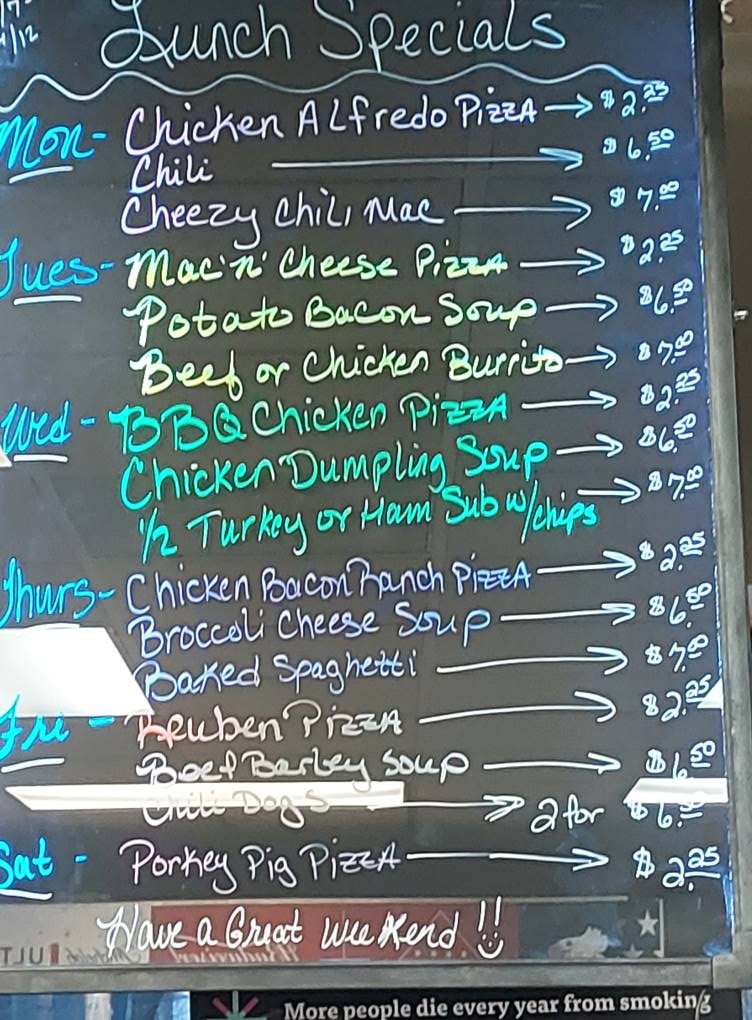 Lunch Specials
Mon- Chicken Alfredo Pizza → $2.25
Chili → $6.50
Cheezy Chili Mac → $7.00
Tues- Mac 'n' Cheese Pizza → $2.25
Potato Bacon Soup → $6.50
Beef or Chicken Burrito → $7.00
Wed- BBQ Chicken Pizza → $2.25
Chicken Dumpling Soup → $6.50
1/2 Turkey or Ham Sub w/chips → $7.00
Thurs- Chicken Bacon Ranch Pizza → $2.25
Broccoli Cheese Soup → $6.50
Baked Spaghetti → $7.00
Fri - Reuben Pizza → $2.25
Beef Barley Soup → $6.50
Chili Dogs → 2 for $6.
Sat - Porkey Pig Pizza → $2.25
Have a Great Weekend !!
More people die every year from smoking